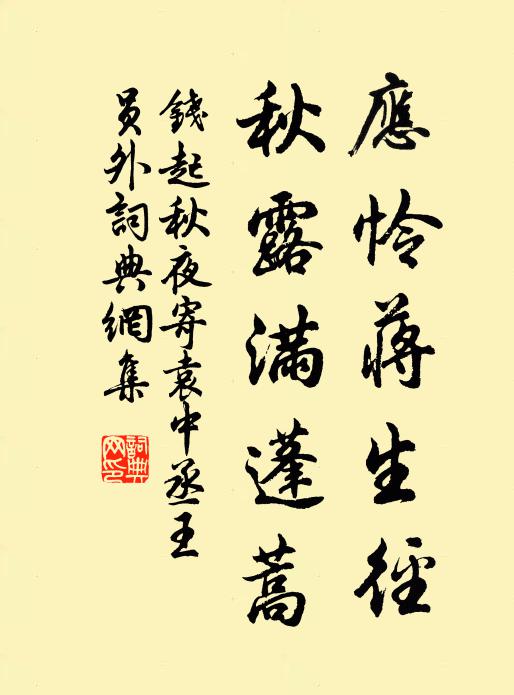 應怜蔣生徑
秋露滿蓬蒿
錢起秋夜寄袁中丞王
員外詞典網集
詞典
网印